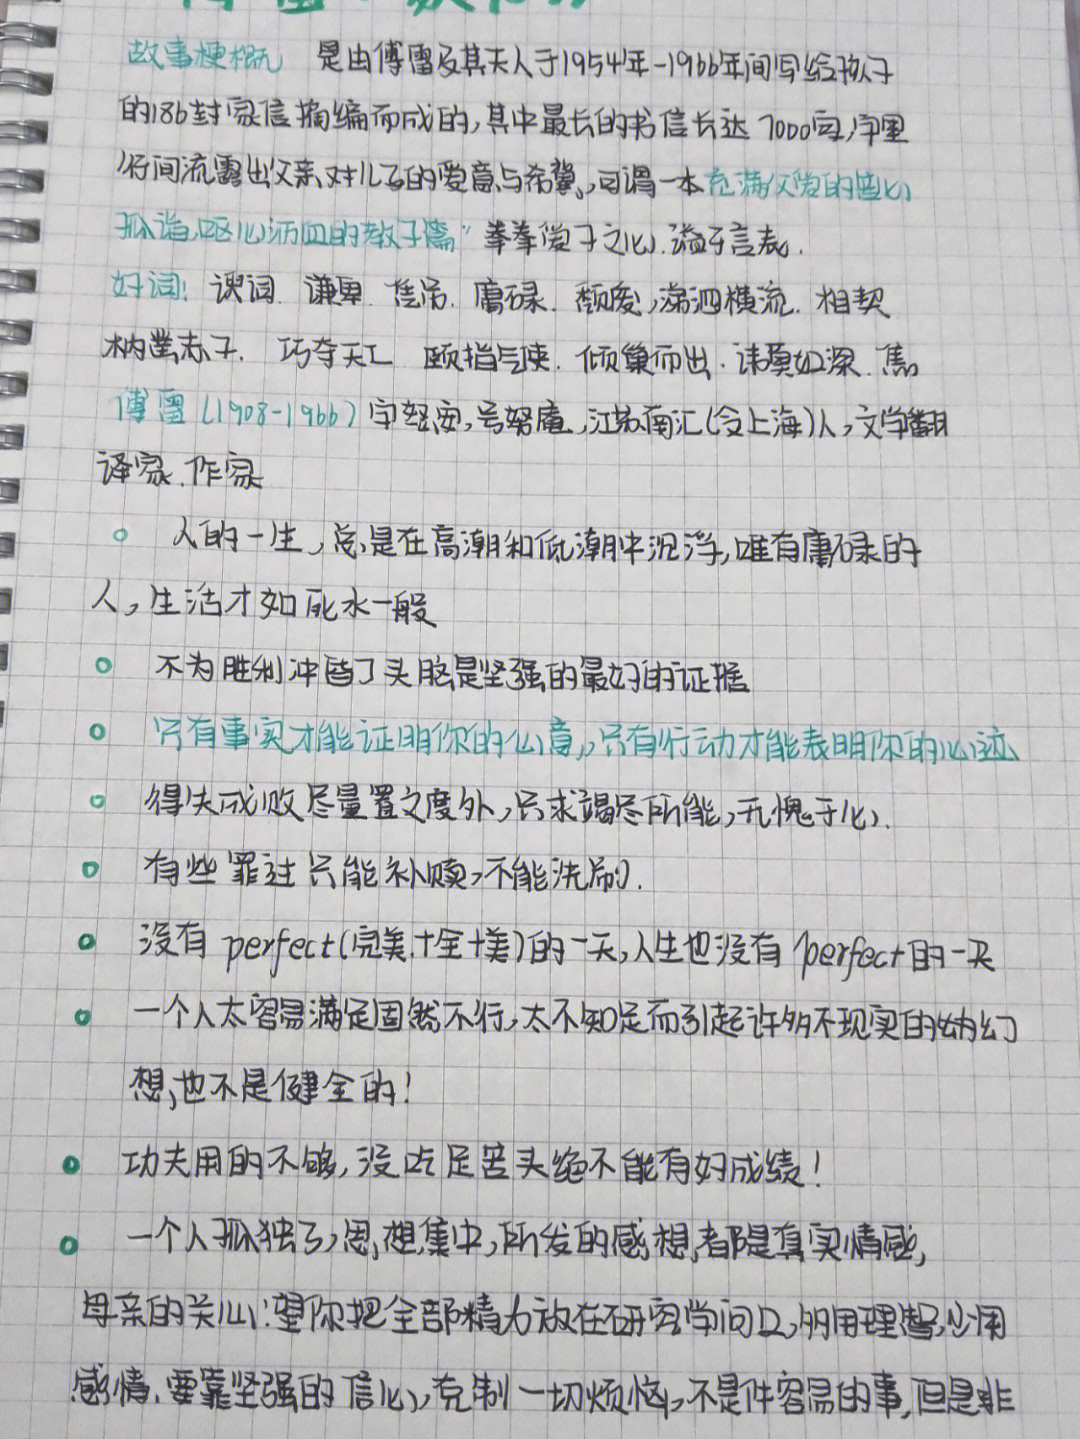 傅雷家书
故事梗概 是由傅雷及其夫人于1954年-1966年间写给孩子
的186封家信摘编而成的,其中最长的书信长达7000字,字里
行间流露出父亲对儿子的爱意与希冀,可谓一本充满父爱的苦心
孤诣,呕心沥血的教子篇"拳拳爱子之心,溢于言表.
好词: 谀词 谦卑 凭吊. 庸碌. 颓废,涕泗横流. 相契
枘凿赤子. 巧夺天工 颐指气使. 倾巢而出. 讳莫如深.
傅雷(1908-1966)字怒安,号怒庵,江苏南汇(今上海)人,文学翻
译家.作家
人的一生,总是在高潮和低潮中沉浮,唯有庸碌的
人,生活才如死水一般
不为胜利冲昏了头脑是坚强的最好的证据
只有事实才能证明你的心意,只有行动才能表明你的心迹
得失成败尽量置之度外,只求竭尽所能,无愧于心.
有些罪过只能补赎,不能洗刷.
没有perfect(完美.十全十美)的一天,人生也没有perfect的一天
一个人太容易满足固然不行,太不知足而引起许多不现实的幻
想,也不是健全的!
功夫用的不够,没吃足苦头绝不能有好成绩!
一个人孤独了,思想集中,所发的感想,都是真实情感,
母亲的关心:望你把全部精力放在研究学问上,多用理智,少用
感情.要靠坚强的信心,克制一切烦恼,不是件容易的事,但是非